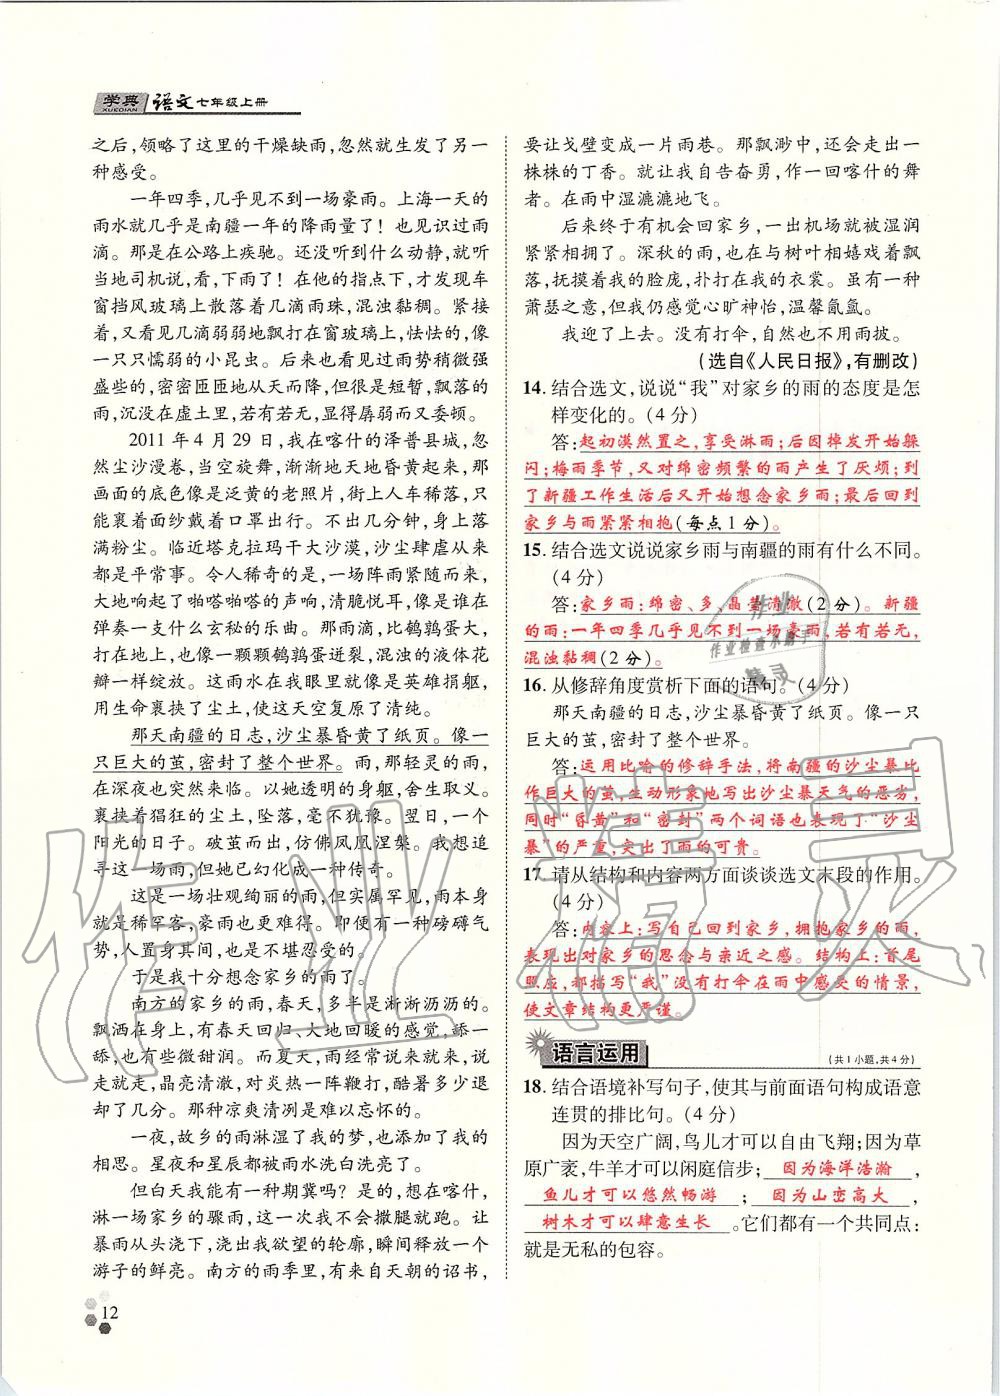 学典
XUEDIAN
语文七年级上册
之后,领略了这里的干燥缺雨,忽然就生发了另一
种感受。
一年四季,几乎见不到一场豪雨。上海一天的
雨水就几乎是南疆一年的降雨量了!也见识过雨
滴。那是在公路上疾驰。还没听到什么动静,就听
当地司机说,看,下雨了!在他的指点下,才发现车
窗挡风玻璃上散落着几滴雨珠,混浊黏稠。紧接
着,又看见几滴弱弱地飘打在窗玻璃上,怯怯的,像
一只只懦弱的小昆虫。后来也看见过雨势稍微强
盛些的,密密匝匝地从天而降,但很是短暂,飘落的
雨,沉没在虚土里,若有若无,显得孱弱而又委顿。
2011年4月29日,我在喀什的泽普县城,忽
然尘沙漫卷,当空旋舞,渐渐地天地昏黄起来,那
画面的底色像是泛黄的老照片,街上人车稀落,只
能裹着面纱戴着口罩出行。不出几分钟,身上落
满粉尘。临近塔克拉玛干大沙漠,沙尘肆虐从来
都是平常事。令人稀奇的是,一场阵雨紧随而来,
大地响起了啪嗒啪嗒的声响,清脆悦耳,像是谁在
弹奏一支什么玄秘的乐曲。那雨滴,比鹌鹑蛋大,
打在地上,也像一颗颗鹌鹑蛋迸裂,混浊的液体花
瓣一样绽放。这雨水在我眼里,就像是英雄捐躯,
用生命裹挟了尘土,使这天空复原了清纯。
那天南疆的日志,沙尘暴昏黄了纸页。像一
只巨大的茧,密封了整个世界。雨,那轻灵的雨,
在深夜也突然来临。以她透明的身躯,舍生取义。
裹挟着猖狂的尘土,坠落,毫不犹豫。翌日,一个
阳光的日子。破茧而出,仿佛凤凰涅槃。我想追
寻这一场雨,但她已幻化成一种传奇。
这是一场壮观绚丽的雨,但实属罕见,雨本身
就是稀罕客,豪雨也更难得。即便有一种磅礴气
势,人置身其间,也是不堪忍受的。
于是我十分想念家乡的雨了。
南方的家乡的雨,春天,多半是淅淅沥沥的。
飘洒在身上,有春天回归、大地回暖的感觉,舔一
舔,也有些微甜润。而夏天,雨来得快也猛,说来
走就走,晶亮清澈,对炎热一阵鞭打,酷暑多少退
却了几分。那种凉爽清冽是难以忘怀的。
一夜,故乡的雨淋湿了我的梦,也添加了我的
相思。星夜和星辰都被雨水洗白洗亮了。
但白天我能有一种期冀吗?是的,想在喀什,
淋一场家乡的骤雨,我一次也不会撒腿就跑。让
暴雨从头浇下,浇成我欲望的轮廓,瞬间释放一个
游子的鲜亮。南方的雨季里,有来自天朝的诏书,
要让戈壁变成一片雨巷。那飘渺中,还会走出一
株株的丁香。就让我自告奋勇,作一回喀什的舞
者。在雨中湿漉漉地飞。
后来终于有机会回家乡,一出机场就被湿润
紧紧相拥了。深秋的雨,也在与树叶相嬉戏着飘
落,抚摸着我的脸庞,扑打在我的衣裳。虽有一种
萧瑟之意,但我仍感觉心旷神怡,温馨氤氲。
我迎了上去。没有打伞,自然也不用雨披。
(选自《人民日报》,有删改)
14. 结合选文,说说“我”对家乡的雨的态度是怎
样变化的。(4分)
答:起初漠然置之,享受淋雨;后因掉发开始躲
闪;梅雨季节,又对绵密频繁的雨产生了厌烦;到
了新疆工作生活后又开始想念家乡雨;最后回到
家乡与雨紧紧相抱(每点1分)。
15. 结合选文说说家乡雨与南疆的雨有什么不同。
(4分)
答:家乡雨:绵密、多、晶莹清澈(2分)。新疆
的雨:一年四季几乎见不到一场豪雨,若有若无,
混浊黏稠(2分)。
16. 从修辞角度赏析下面的语句。(4分)
那天南疆的日志,沙尘暴昏黄了纸页。像一只
巨大的茧,密封了整个世界。
答:运用比喻的修辞手法,将南疆的沙尘暴比
作巨大的茧,生动形象地写出沙尘暴天气的恶劣,
同时“昏黄”和“密封”两个词语也表现了“沙尘
暴”的严重,突出了雨的可贵。
17. 请从结构和内容两方面谈谈选文末段的作用。
(4分)
答:内容上:写自己回到家乡,拥抱家乡的雨,
表现出对家乡的思念与亲近之感。结构上:首尾
照应,都描写“我”没有打伞在雨中感受的情景,
使文章结构更严谨。
语言运用
(共1小题,共4分)
18. 结合语境补写句子,使其与前面语句构成语意
连贯的排比句。(4分)
因为天空广阔,鸟儿才可以自由飞翔;因为草
原广袤,牛羊才可以闲庭信步;因为海洋浩瀚,
鱼儿才可以悠然畅游;因为山峦高大,
树木才可以肆意生长。它们都有一个共同点:
就是无私的包容。
12
作业精灵
作业
作业检查小助手
精灵